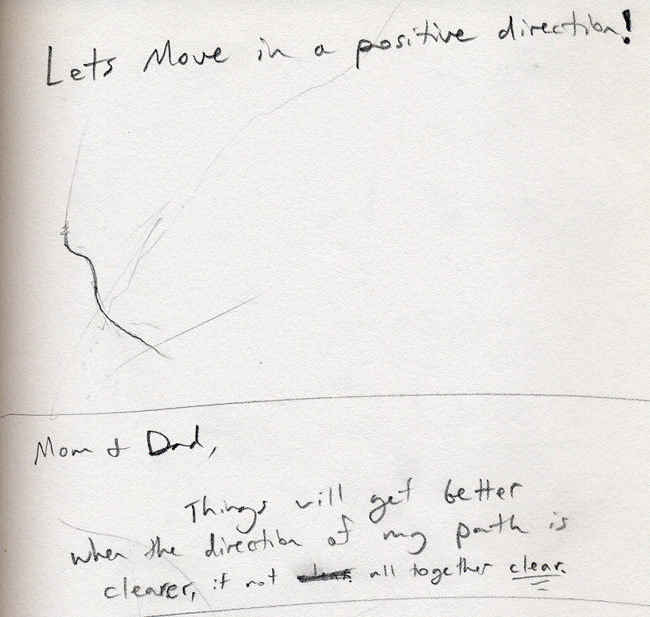 Lets Move in a positive direction!
Mom & Dad,
Things will get better
when the direction of my path is
clearer, if not clear all together clear.